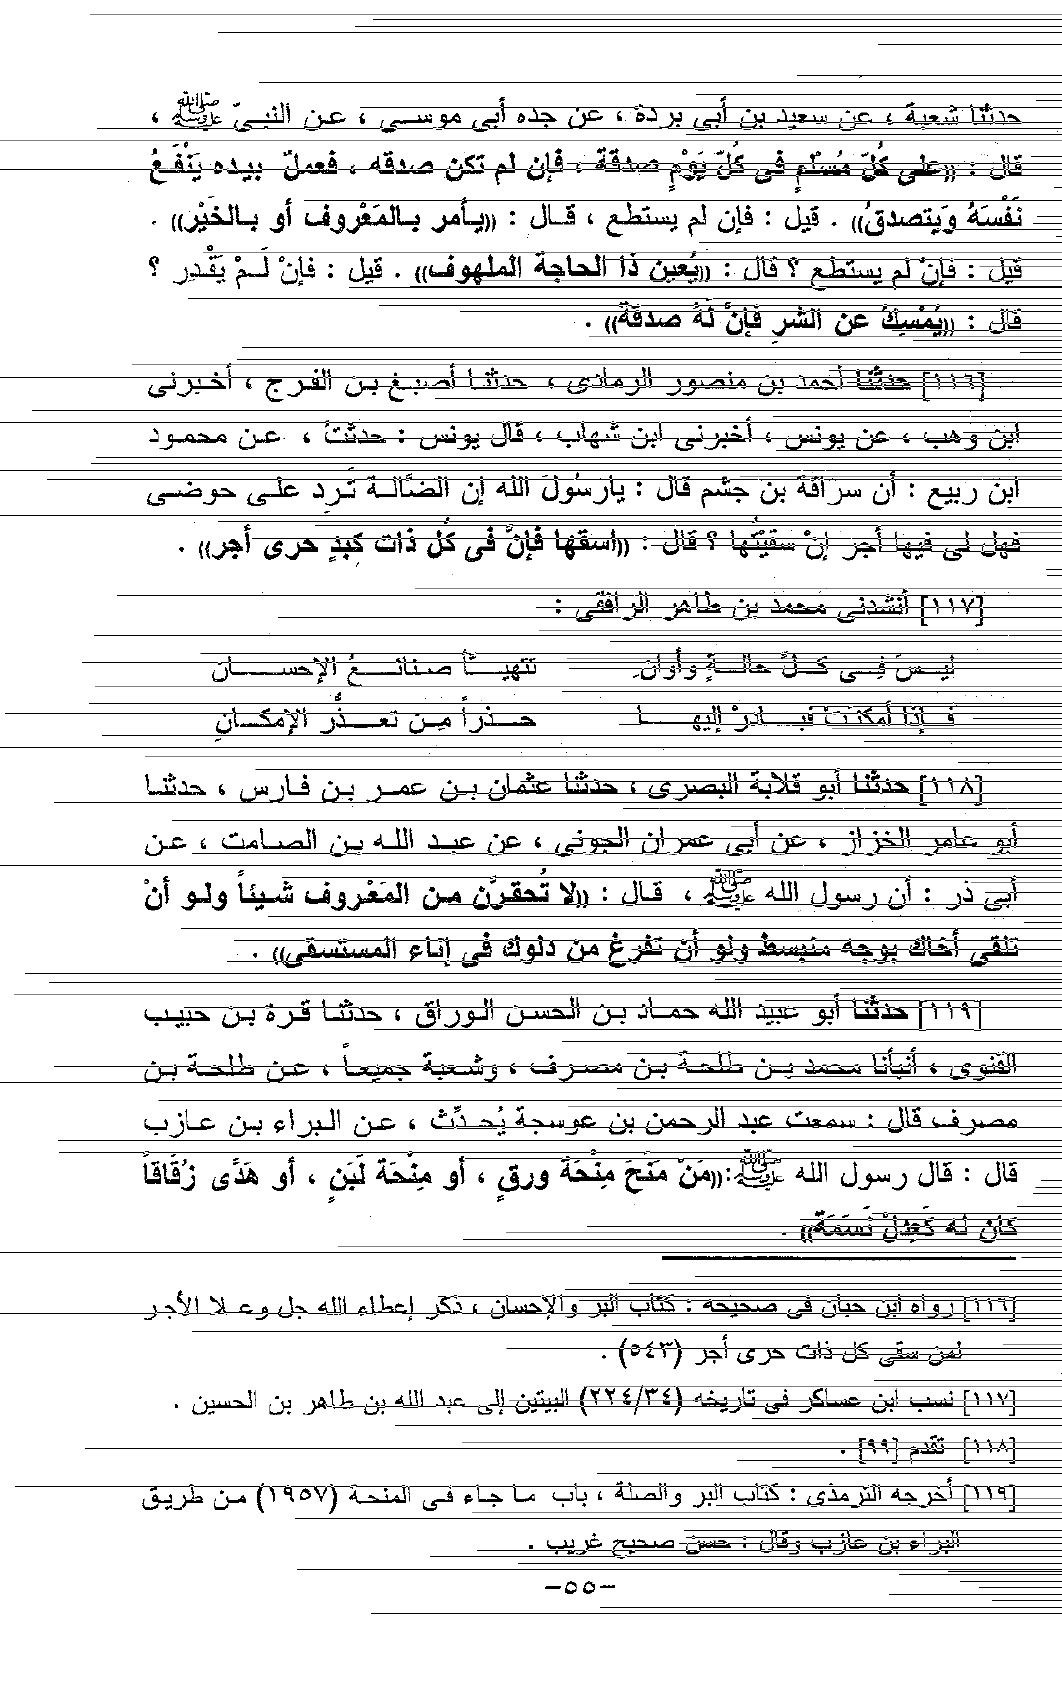 حدثنا شعبة ، عن سعيد بن أبى بردة ، عن جده أبى موسى ، عن النبىّ ﷺ ،
قال : ((على كُلّ مُسْلمٍ فى كُلّ يَوْمٍ صدقَةَ ، فإن لم تكن صدقه ، فعملّ بيده يَنْفَعُ
نَفْسَهُ وَيتصدقُ)) . قيل : فإن لم يستطع ، قال : ((يأمر بالمَعْروف أو بالخَيْر)) .
قيل : فإنْ لم يستطع ؟ قال : ((يُعين ذَا الحاجة الملهوف)) . قيل : فإنْ لَمْ يَقْدر ؟
قال : ((يُمْسِكُ عن الشرِ فإنَّ لَهُ صدقَةَ)) .
[١١٦] حدثنا أحمد بن منصور الرمادى ، حدثنا أصبغ بن الفرج ، أخبرنى
ابن وهب ، عن يونس ، أخبرنى ابن شهاب ، قال يونس : حدثتُ ، عن محمود
ابن ربيع : أن سراقة بن جشم قال : يارسُولَ الله إن الضَّالة تَرِد على حوضى
فهل لى فيها أجر إنْ سقيُتها ؟ قال : ((اسقها فإنَّ فى كُل ذات كَبِدٍ حرى أجر)) .
[١١٧] أنشدنى محمد بن طاهر الرافقى :
ليسَ فِى كلّ حالةٍ وأوانِ تتهيأ صنائعُ الإحسان
فإذا أمكنت فبادرْ إليها حذراً مِن تعذُّر الإمكانِ
[١١٨] حدثنا أبو قلابة البصرى ، حدثنا عثمان بن عمر بن فارس ، حدثنا
أبو عامر الخزاز ، عن أبى عمران الجونى ، عن عبد الله بن الصامت ، عن
أبى ذر : أن رسول الله ﷺ ، قال : ((لا تُحقرَّن من المَعْروف شيئاً ولو أنْ
تلقى أخاك بوجه منبسط ولو أن تفرغ من دلوك فى إناء المستسقى)) .
[١١٩] حدثنا أبو عبيد الله حماد بن الحسن الوراق ، حدثنا قرة بن حبيب
القنوى ، أنبأنا محمد بن طلحة بن مصرف ، وشعبة جميعاً ، عن طلحة بن
مصرف قال : سمعت عبد الرحمن بن عوسجة يُحدِّث ، عن البراء بن عازب
قال : قال رسول الله ﷺ:((مَنّ مَنَحَ مِنْحَةَ ورقٍ ، أو مِنْحَة لَبَنٍ ، أو هَدَّى زُقَاقَاً
كَان لَه كَعِدْلْ نَسَمَةَ)) .
[١١٦] رواه ابن حبان فى صحيحه : كتاب البر والإحسان ، ذكر إعطاء الله جل وعلا الأجر
لمن سقى كل ذات حرى أجر (٥٤٣) .
[١١٧] نسب ابن عساكر فى تاريخه (٢٢٤/٣٤) البيتين إلى عبد الله بن طاهر بن الحسين .
[١١٨] تقدم [٩٩] .
[١١٩] أخرجه الترمذى : كتاب البر والصلة ، باب ما جاء فى المنحة (١٩٥٧) من طريق
البراء بن عازب وقال : حسن صحيح غريب .
-٥٥-